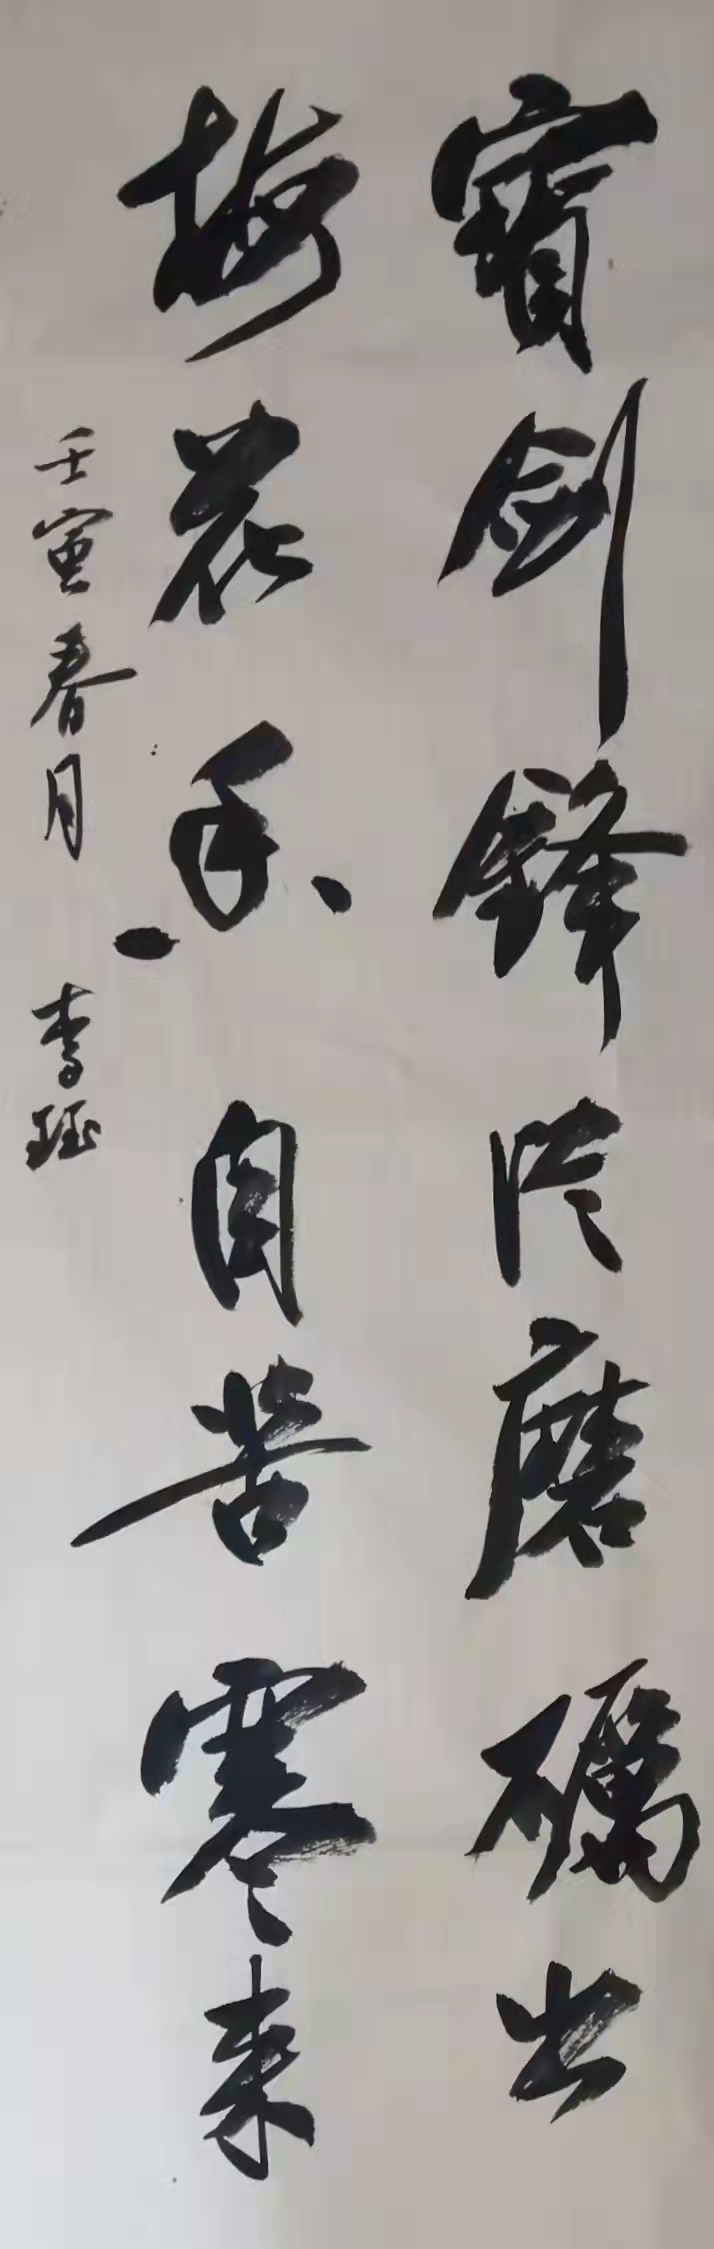 寶劍鋒从磨礪出
梅花香自苦寒来
壬寅春月 李珏